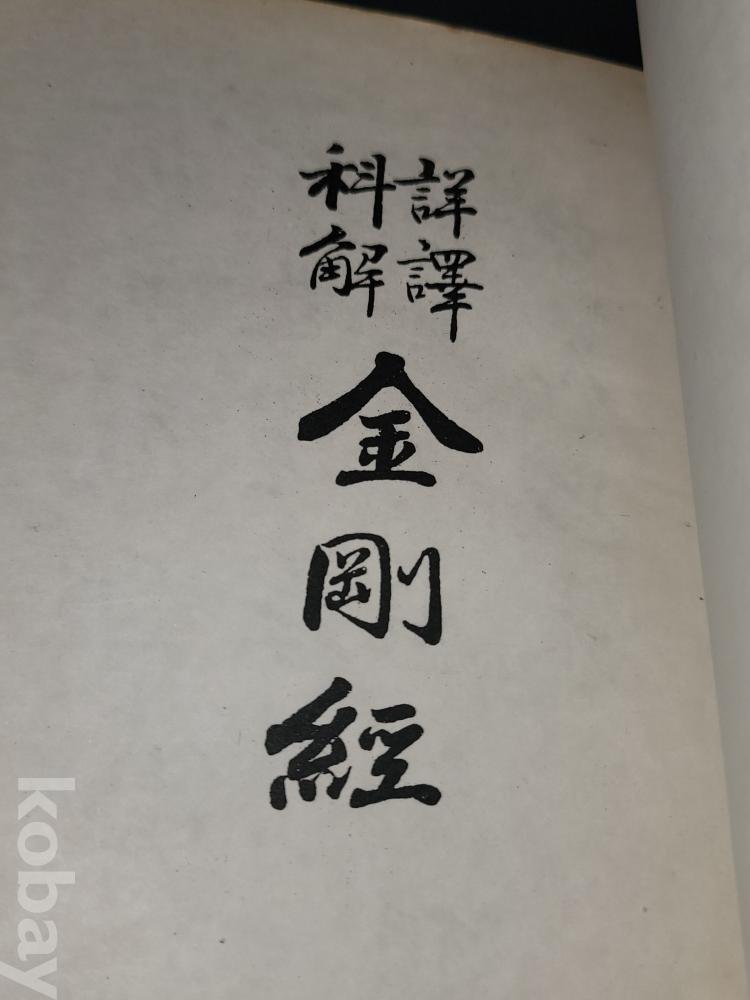 詳譯
科解
金剛經
kobay